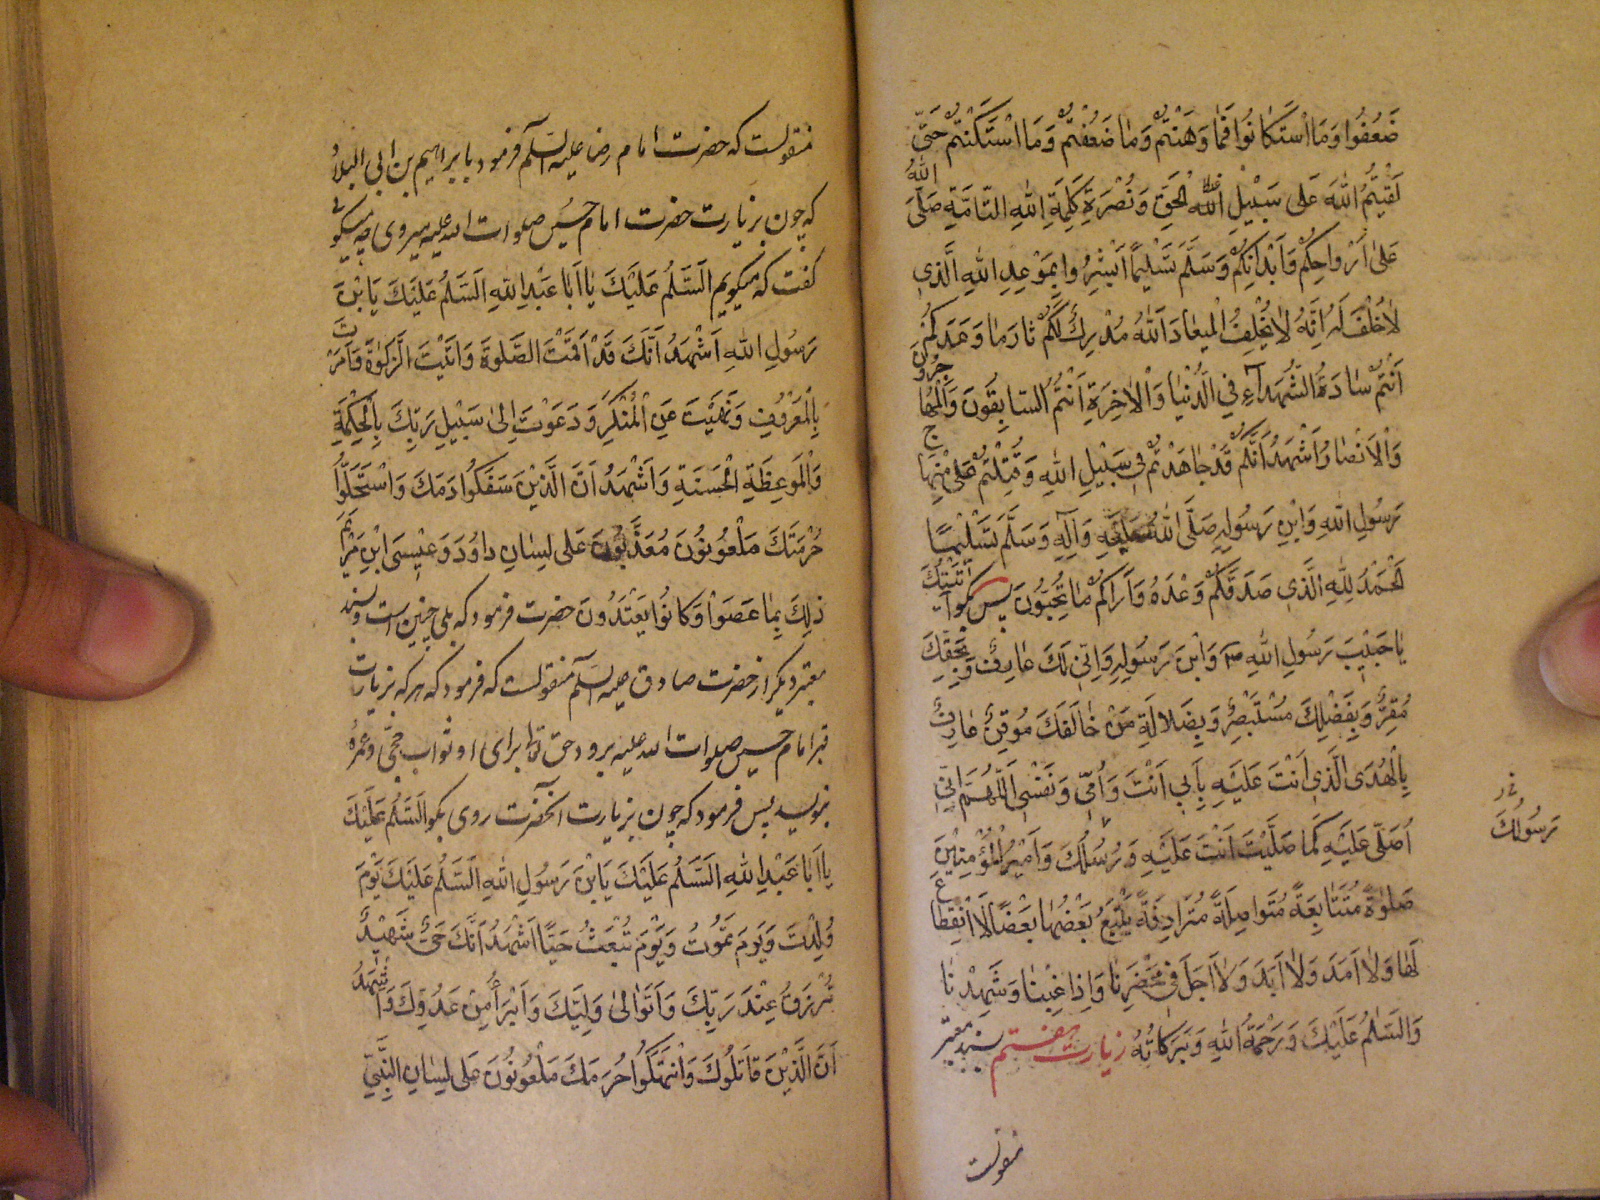 ضَعُفُوا وَمَا اسْتَكَانُوا فَمَا وَهَنْتُمْ وَمَا ضَعُفْتُمْ وَمَا اسْتَكَنْتُمْ حَتّىٰ
لَقيتُمُ اللهَ عَلى سَبيْلِ الْحَقِّ وَنُصْرَةِ كَلِمَةِ اللهِ التّامَّةِ صَلَّى اللهُ
عَلىٰ اَرْواحِكُمْ وَاَبْدَانِكُمْ وَسَلَّمَ تَسْليْماً اَبْشِرُوا بِمَوْعِدِ اللهِ الَّذي
لاٰ خُلْفَ لَهُ اِنَّهُ لاٰ يُخْلِفُ الْميعٰادَ اَللهُ مُدْرِكٌ لَكُمْ ثٰارَ مٰا وَعَدَكُمْ
اَنْتُمْ سٰادَةُ الشُّهَدٰآءِ فِي الدُّنْيٰا وَالْاٰخِرَةِ اَنْتُمُ السّابِقُونَ وَالْمُهٰاجِرُونَ
وَالْاَنْصٰارُ اَشْهَدُ اَنَّكُمْ قَدْ جٰاهَدْتُمْ فى سَبيْلِ اللهِ وَقُتِلْتُمْ عَلىٰ مِنْهٰاجِ
رَسُولِ اللهِ وَابْنِ رَسُولِهِ صَلَّى اللهُ عَلَيْهِ وَآلِهِ وَسَلَّمَ تَسْليْمًا
اَلْحَمْدُ لِلّٰهِ الَّذي صَدَقَكُمْ وَعْدَهُ وَاَرَاكُمْ مٰا تُحِبُّونَ پس بكو اَتَيْتُكَ
يٰا حَبيْبَ رَسُولِ اللهِ وَابْنَ رَسُولِهِ وَاِنّى لَكَ عٰارِفٌ وَبِحَقِّكَ
مُقِرٌّ وَبِفَضْلِكَ مُسْتَبْصِرٌ وَبِضَلالَةِ مَنْ خٰالَفَكَ مُوقِنٌ عٰارِفٌ
بِالْهُدَى الَّذي اَنْتَ عَلَيْهِ بِاَبي اَنْتَ وَاُمّى وَنَفْسى اَللّٰهُمَّ اِنّى
اُصَلّى عَلَيْهِ كَمٰا صَلَّيْتَ اَنْتَ عَلَيْهِ وَرُسُلُكَ وَاَميْرُ الْمُؤْمِنيْنَ
رَسُولُكَ
صَلوٰةً مُتَتٰابِعَةً مُتَواصِلَةً مُتَرادِفَةً يَتْبَعُ بَعْضُهٰا بَعْضًا لَا انْقِطٰاعَ
لَهٰا وَلاٰ اَمَدَ وَلاٰ اَبَدَ وَلاٰ اَجَلَ فى مَحْضَرِنٰا وَاِذٰا غِبْنٰا وَشَهِدْنٰا
وَالسَّلٰمُ عَلَيْكَ وَرَحْمَةُ اللهِ وَبَرَكٰاتُهُ زيارت هفتم بسند معتبر
منقولست
منقولست كه حضرت امام رضا عليه السلم فرمود بابراهيم بن ابى البلاد
كه چون بزيارت حضرت امام حسين صلوات الله عليه ميروى چه ميكوئى
كفت كه ميكويم اَلسَّلٰمُ عَلَيْكَ يٰا اَبٰا عَبْدِ اللهِ اَلسَّلٰمُ عَلَيْكَ يَا ابْنَ
رَسُولِ اللهِ اَشْهَدُ اَنَّكَ قَدْ اَقَمْتَ الصَّلوةَ وَاٰتَيْتَ الزَّكوٰةَ وَاَمَرْتَ
بِالْمَعْرُوفِ وَنَهَيْتَ عَنِ الْمُنْكَرِ وَدَعَوْتَ اِلىٰ سَبيْلِ رَبِّكَ بِالْحِكْمَةِ
وَالْمَوعِظَةِ الْحَسَنَةِ وَاَشْهَدُ اَنَّ الَّذيْنَ سَفَكُوا دَمَكَ وَاسْتَحَلُّوا
حُرْمَتَكَ مَلْعُونُونَ مُعَذَّبُونَ عَلى لِسٰانِ داوُدَ وَعيْسىَ ابْنِ مَرْيَمَ
ذٰلِكَ بِمٰا عَصَوْا وَكٰانُوا يَعْتَدُونَ حضرت فرمود كه بلى چنين است وبسند
معتبر ديكر از حضرت صادق عليه السلم منقولست كه فرمود كه هركه بزيارت
قبر امام حسين صلوات الله عليه برود حق تعالى براى او ثواب حجّى وعمرهٔ
بنويسد پس فرمود كه چون بزيارت آنحضرت روى بكو اَلسَّلٰمُ عَلَيْكَ
يٰا اَبٰا عَبْدِ اللهِ اَلسَّلٰمُ عَلَيْكَ يَا ابْنَ رَسُولِ اللهِ اَلسَّلٰمُ عَلَيْكَ يَوْمَ
وُلِدْتَ وَيَومَ تَمُوتُ وَيَوْمَ تُبْعَثُ حَيًّا اَشْهَدُ اَنَّكَ حَىٌّ شَهيْدٌ
تُرْزَقُ عِنْدَ رَبِّكَ وَاَتَوٰالىٰ وَلِيَّكَ وَاَبْرَأُ مِنْ عَدُوِّكَ وَاَشْهَدُ
اَنَّ الَّذيْنَ قٰاتَلُوكَ وَانْتَهَكُوا حُرَمَكَ مَلْعُونُونَ عَلى لِسٰانِ النَّبِيّ